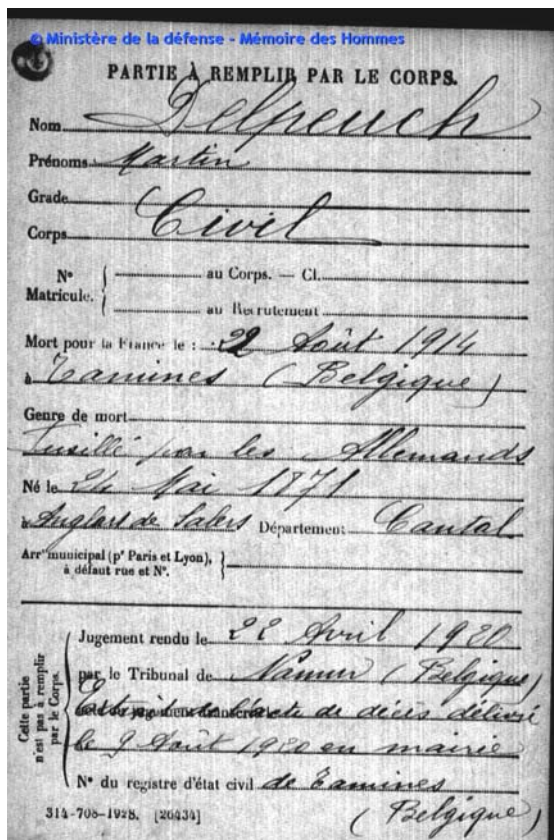 © Ministère de la défense - Mémoire des Hommes
PARTIE À REMPLIR PAR LE CORPS.
Nom Delpeuch
Prénoms Martin
Grade
Corps Civil
N° Matricule. { au Corps. — Cl.
au Recrutement
Mort pour la France le : 22 Août 1914
à Tamines (Belgique)
Genre de mort
Fusillé par les Allemands
Né le 24 Mai 1871
à Anglars de Salers Département Cantal
Arrt municipal (pr Paris et Lyon),
à défaut rue et N°. }
Cette partie
n'est pas à remplir
par le Corps.
Jugement rendu le 22 Avril 1920
par le Tribunal de Namur (Belgique)
Extrait de l'acte de décès délivré
le 9 Août 1920 en mairie
N° du registre d'état civil de Tamines
(Belgique)
314-708-1928. [26434]